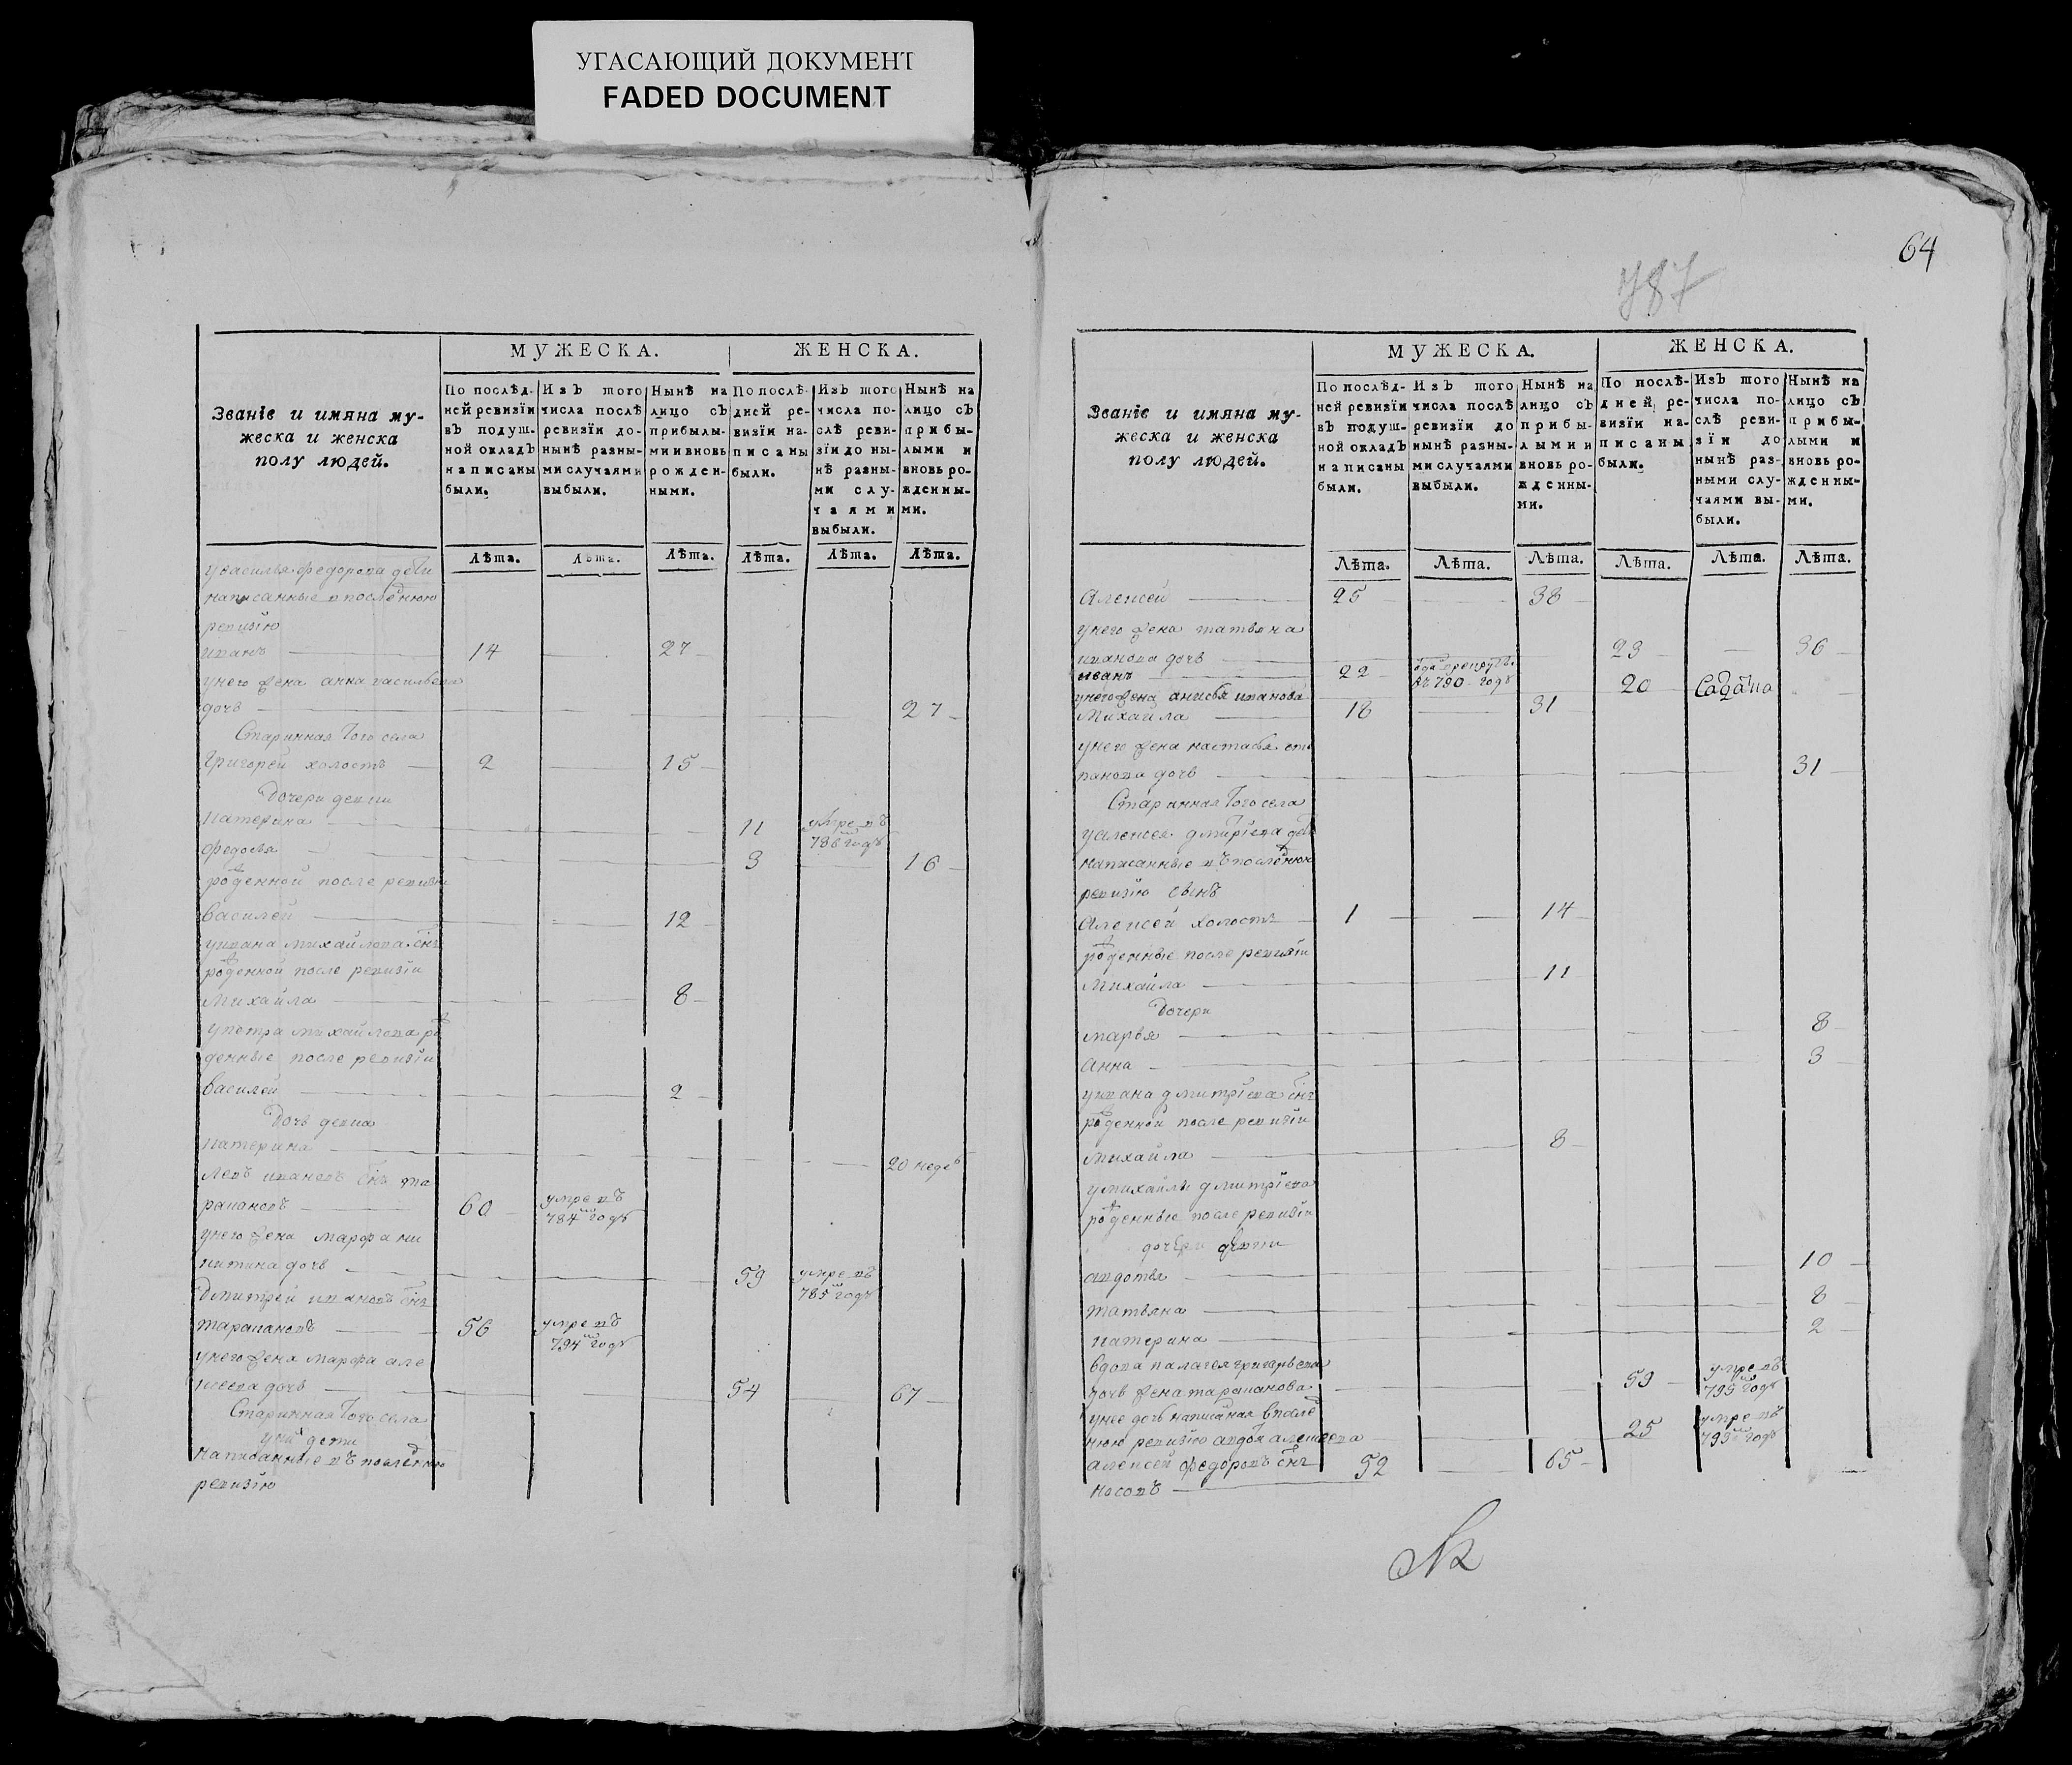 УГАСАЮЩИЙ ДОКУМЕНТ
FADED DOCUMENT
МУЖЕСКА. ЖЕНСКА.
Званїе и имяна му-
жеска и женска
полу людей.
По послѣд-
ней ревизїи
въ подуш-
ной окладъ
написаны
были.
Изъ того
числа послѣ
ревизїи до-
нынѣ разны-
ми случаями
выбыли.
Нынѣ на
лицо съ
прибылы-
ми и вновь
рожден-
ными.
По послѣ-
дней ре-
визїи на-
писаны
были.
Изъ того
числа по-
слѣ реви-
зїи до ны-
нѣ разны-
ми слу-
чаями
выбыли.
Нынѣ на
лицо съ
прибы-
лыми и
вновь ро-
жденны-
ми.
Лѣта. Лѣта. Лѣта. Лѣта. Лѣта. Лѣта.
у василья федорова дети
написанные в последнюю
ревизїю
иванъ 14 27
у него жена анна васильева
дочь 27
Старинная того села
григорей холостъ 2 15
Дочери девки
катерина 11 умре въ
786м годѣ
федосья 3 16
рожденной после ревизїи
василей 12
у ивана михайлова снъ
рожденной после ревизїи
михайла 8
у петра михайлова ро
жденные после ревизїи
василей 2
Дочь девка
катерина 20 недель
левъ ивановъ снъ та
ракановъ 60 умре въ
784м годѣ
у него жена марфа ни
китина дочь 59 умре въ
785м годѣ
Дмитрей ивановъ снъ
таракановъ 56 умре въ
794м годѣ
у него жена марфа але
ксеева дочь 54 67
Старинная того села
у них дети
написанные въ последнюю
ревизїю
64
787
МУЖЕСКА. ЖЕНСКА.
Званїе и имяна му-
жеска и женска
полу людей.
По послѣд-
ней ревизїи
въ подуш-
ной окладъ
написаны
были.
Изъ того
числа послѣ
ревизїи до
нынѣ разны-
ми случаями
выбыли.
Нынѣ на
лицо съ
прибы-
лыми и
вновь ро-
жденны-
ми.
По послѣ-
дней ре-
визїи на-
писаны
были.
Изъ того
числа по-
слѣ реви-
зїи до
нынѣ раз-
ными слу-
чаями вы-
были.
Нынѣ на
лицо съ
прибы-
лыми и
вновь ро-
жденны-
ми.
Лѣта. Лѣта. Лѣта. Лѣта. Лѣта. Лѣта.
Алексей 25 38
у него жена татьяна
иванова дочь 23 36
иванъ 22 въ 790 годѣ
у него жена анисья иванова 20
михайла 18 31
у него жена настасья сте
панова дочь 31
Старинная того села
у алексея дмитрїева дети
написанные въ последнюю
ревизїю сынъ
Алексей холостъ 1 14
рожденные после ревизїи
михайла 11
Дочери
марья 8
анна 3
у ивана дмитрїева снъ
рожденной после ревизїи
михайла 8
у михайлы дмитрїева
рожденные после ревизїи
дочери девки
авдотья 10
татьяна 8
катерина 2
вдова палагея григорьева
дочь жена тараканова 59 умре въ
795м годѣ
у нее дочь написаная в после
нюю ревизїю алексеева 25 умре въ
793м годѣ
алексей федоровъ снъ 52 65
носовъ